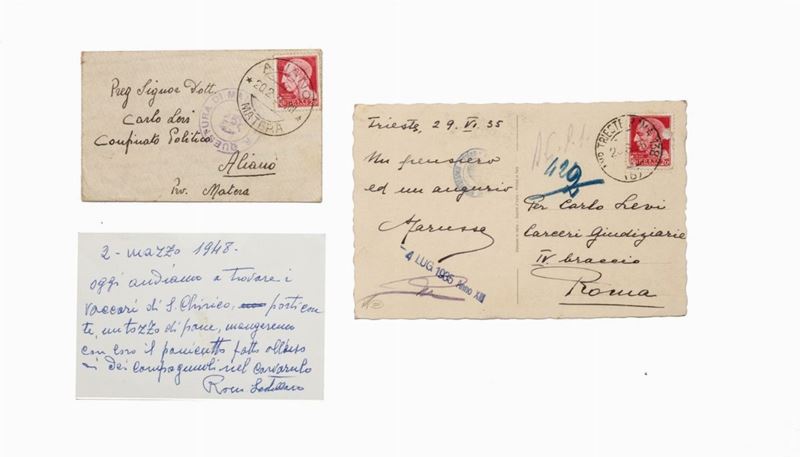 Preg Signor Dott.
Carlo Levi
Confinato Politico
Aliano
Prv. Matera
ALIANO
20.2
MATERA
QUESTURA DI MA
2 - marzo 1948 -
oggi andiamo a trovare i
vaccari di S. Chirico, porti con
te, un tozzo di pane, mangeremo
con loro il panicotto fatto all'uso
dei compagnuoli nel
Trieste, 29. VI. 35
Un pensiero
ed un augurio
Marussi
4 LUG. 1935 Anno XIII
420
TRIESTE
Per Carlo Levi
Carceri Giudiziarie
IV braccio
Roma